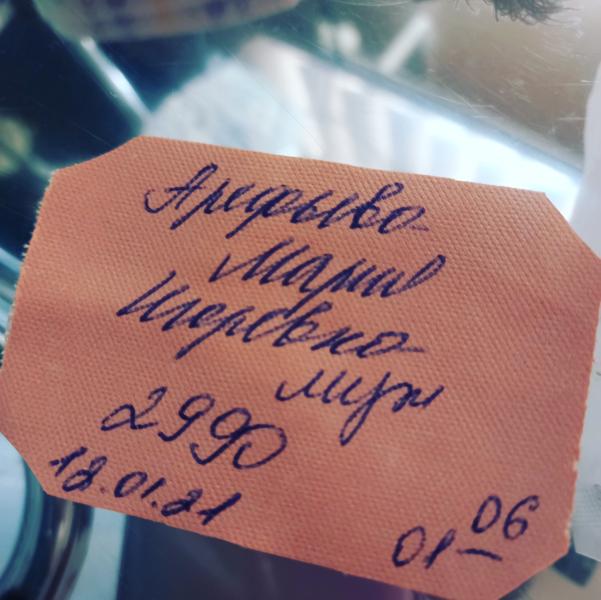 Арефьева
Мария
Игоревна
муж
2990
18.01.21
01-06